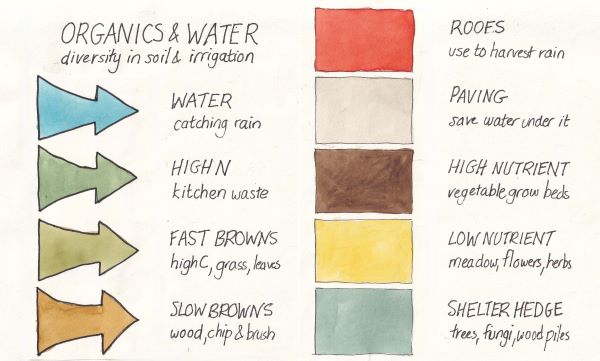 ORGANICS & WATER
diversity in soil & irrigation
WATER
catching rain
HIGH N
kitchen waste
FAST BROWNS
high C, grass, leaves
SLOW BROWNS
wood, chip & brush
ROOFS
use to harvest rain
PAVING
save water under it
HIGH NUTRIENT
vegetable grow beds
LOW NUTRIENT
meadow, flowers, herbs
SHELTER HEDGE
trees, fungi, wood piles